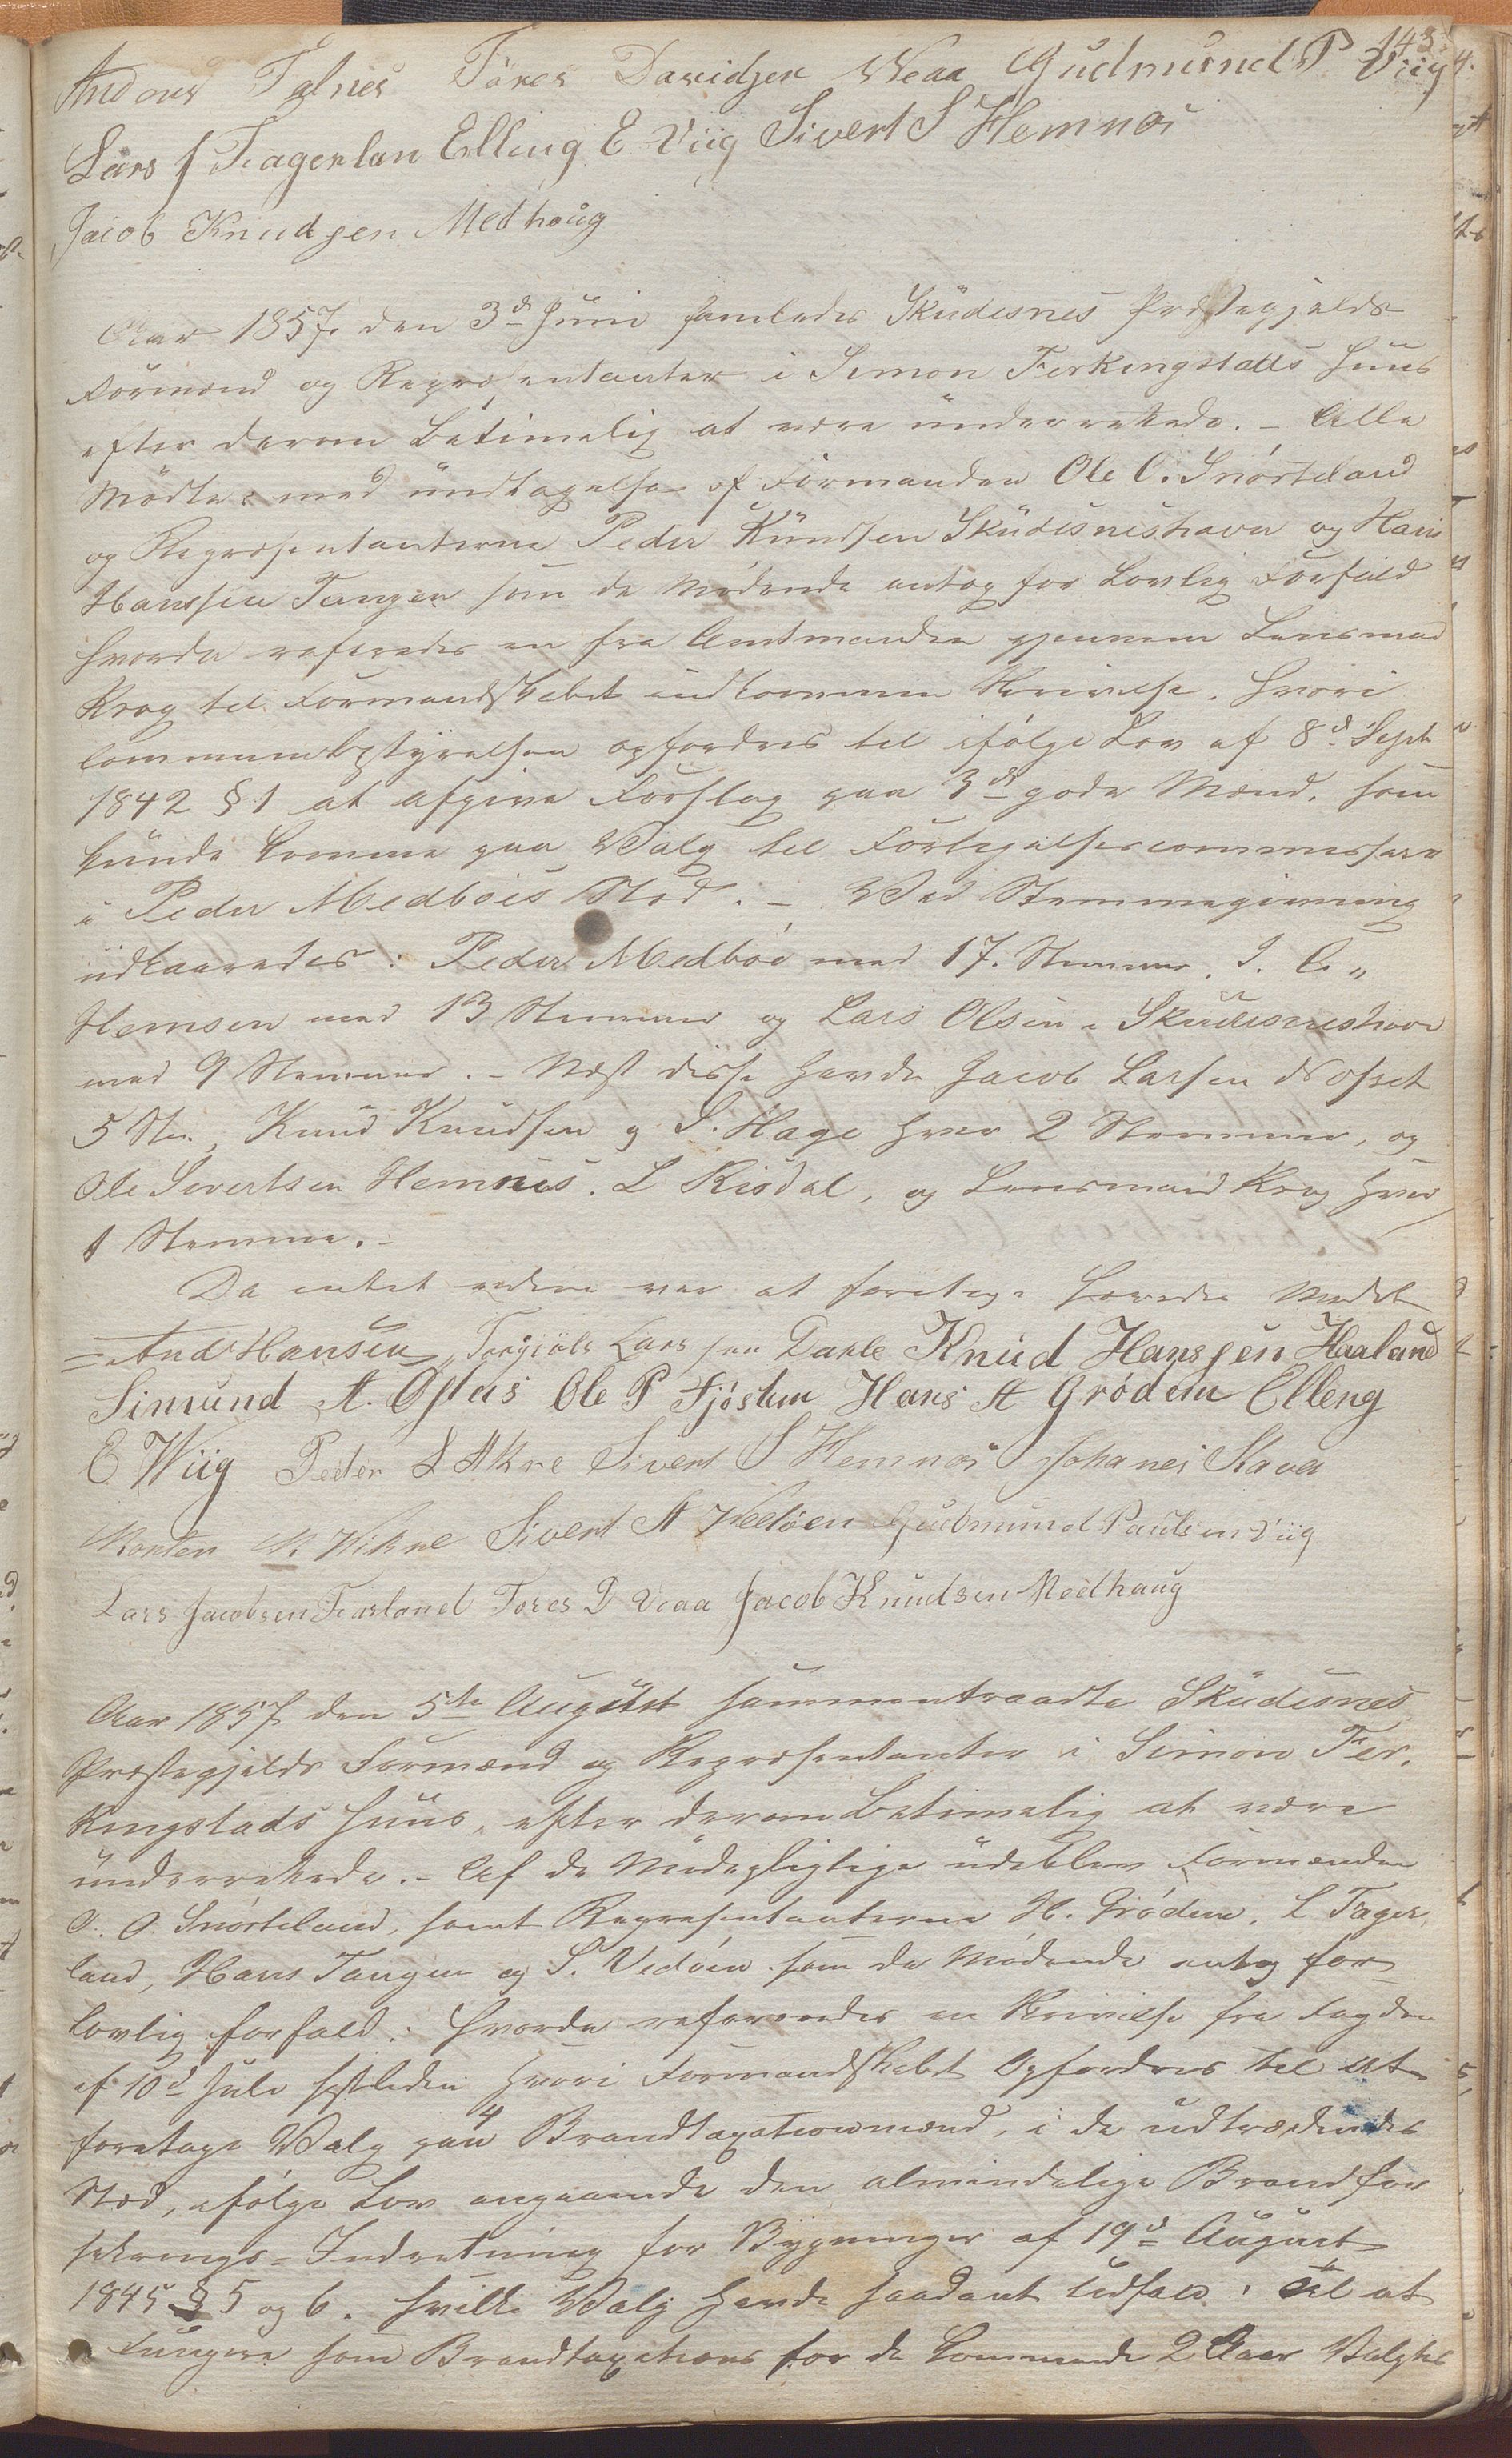 143.
Andoras Falnes Töres Davidsen Weaa Gudmund P Viig
Lars J Fagerlan Elling E Viig Sivert S Hemnæs
Jacob Knudsen Medhoug
Aar 1857 den 3d Juni samledes Skudesnes Præstegjelds
Formænd og Repræsentanter i Simon Ferkingstads Huus
efter derom betimelig at være underrettede. - Alle
Mödte med undtagelse af Formanden Ole O. Snörteland
og Repræsentanterne Peder Knudsen Skudesneshavn og Hans
Hanssen Tangen som de Mödende antog for Lovlig Forfald
Hvorda refereredes en fra Amtmanden gjennem Lensmand
Krog til Formandskabet indkommen Skrivelse, hvori
Communebestyrelsen opfordres til ifölge Lov af 8d Sept
1842 § 1 at afgive Forslag paa 3de gode Mænd, som
kunde komme paa Valg til Forligelsescommissair
i Peder Medböes Sted. - Ved Stemmegivning
udkaaredes: Peder Medböe med 17 Stemmer, J. C.
Hemsen med 13 Stemmer og Lars Olsen Skudesneshavn
med 9 Stemmer. - Næst disse havde Jacob Larsen
5 St., Knud Knudsen og S. Hage hver 2 Stemmer, og
Ole Sivertsen Hemnes, L Risdal, og Lensmand Krog hver
1 Stemme. -
Da intet videre var at foretage hævedes Mödet
And Hansen, Torgiöls Larssen Dahle Knud Hanssen Haaland
Simund A. Ostus Ole P Fjösten Hans A Gröden Elling
E Wiig Peder L Akre Sivert S Hemnæs Johanes Stava
Morten M Vikre Sivert A Vedöen Gudmund Paulsen Viig
Lars Jacobsen Farland Tores D Veaa Jacob Knudsen Medhaug
Aar 1857 den 5te August sammentraadte Skudesnes
Præstegjelds Formænd og Repræsentanter i Simon Fer-
kingstads Huus, efter derom betimelig at være
underrettede. - Af de Mödepligtige udeblev Formanden
O. O. Snörteland, samt Repræsentanterne H. Gröden, L Fager-
land, Hans Tangen og S. Vedöen som de Mödende antog for
lovlig forfald. Hvorda refereredes en Skrivelse fra Fogden
af 10d Juli sistleden hvori Formandskabet Opfordres til at
foretage Valg paa 4 Brandtaxationsmænd, i de udtrædendes
Sted, ifölge Lov angaaende den almindelige Brandfor-
sikrings-Indretning for Bygninger af 19d August
1845 § 5 og 6. Hvilke Valg havde saadant Udfald: Til at
Fungere som Brandtaxations for de kommende 2 Aar Valgtes